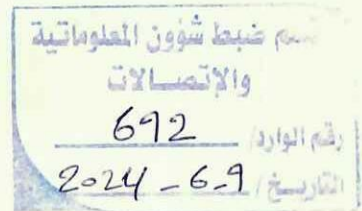 قسم ضبط شؤون المعلوماتية
والإتصالات
رقم الوارد/ 692
التاريخ/ 2024_6_9